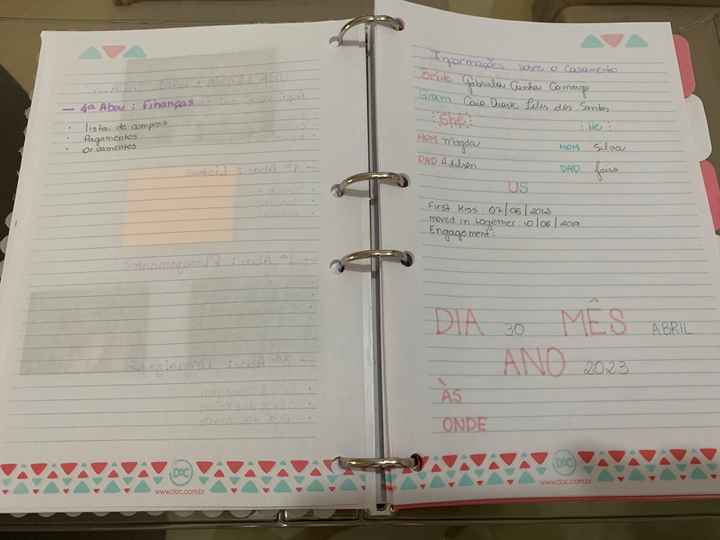 — 4ª Aba : Finanças
· lista de compras
· Pagamentos
· orçamentos
DAC
www.dac.com.br
Informações sobre o Casamento
Gabriella Cunha Camargo
Groom Caio Duarte dos Santos
: She :
: He :
MOM Magda
MOM Silva
DAD Adilson
DAD
US
First Kiss : 07/06/2012
moved in together : 10/06/2019
Engagement :
DIA 30 MÊS ABRIL
ANO 2023
ÀS
ONDE
DAC
www.dac.com.br